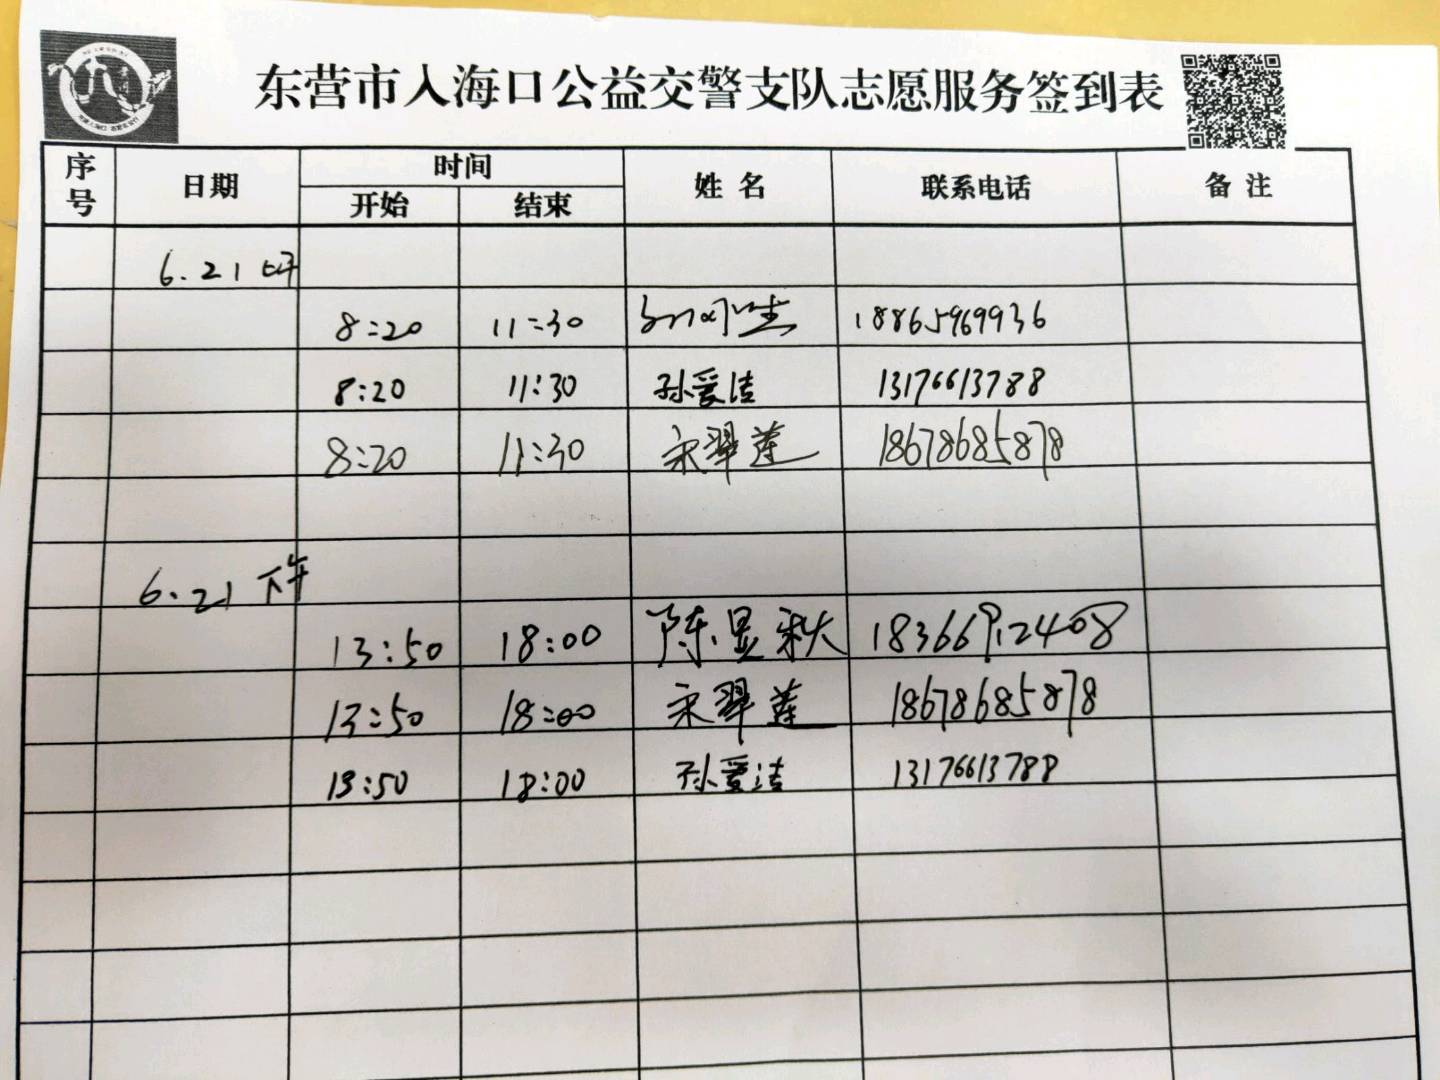 东营市入海口公益交警支队志愿服务签到表
序号 日期 时间 姓名 联系电话 备注
开始 结束
6.21
8:20 11:30 18865969936
8:20 11:30 孙爱洁 13176613788
8:20 11:30 宋翠莲 18678685878
6.21 下午
13:50 18:00 陈显秋 18366912408
13:50 18:00 宋翠莲 18678685878
13:50 18:00 孙爱洁 13176613788